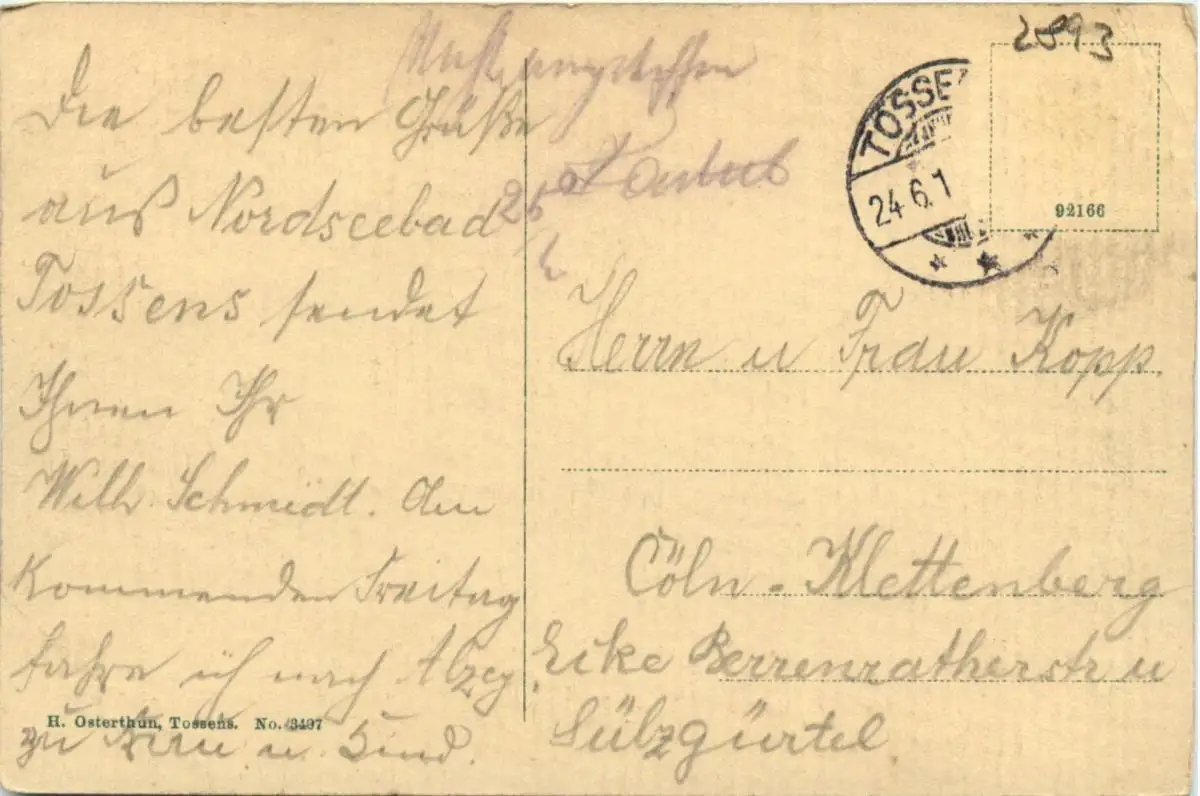 Die besten Grüße
aus Nordseebad
Tossens sendet
Ihnen Ihr
Wilh Schmidt. Am
kommenden Freitag
fahre ich nach Alzey
zu Frau u. Kind.
H. Osterthun, Tossens. No. 3497
2093
TOSSE
24.6.1
92166
25
Herrn u Frau Kopp
Cöln-Klettenberg
Ecke Berrenratherstr u
Sülzgürtel